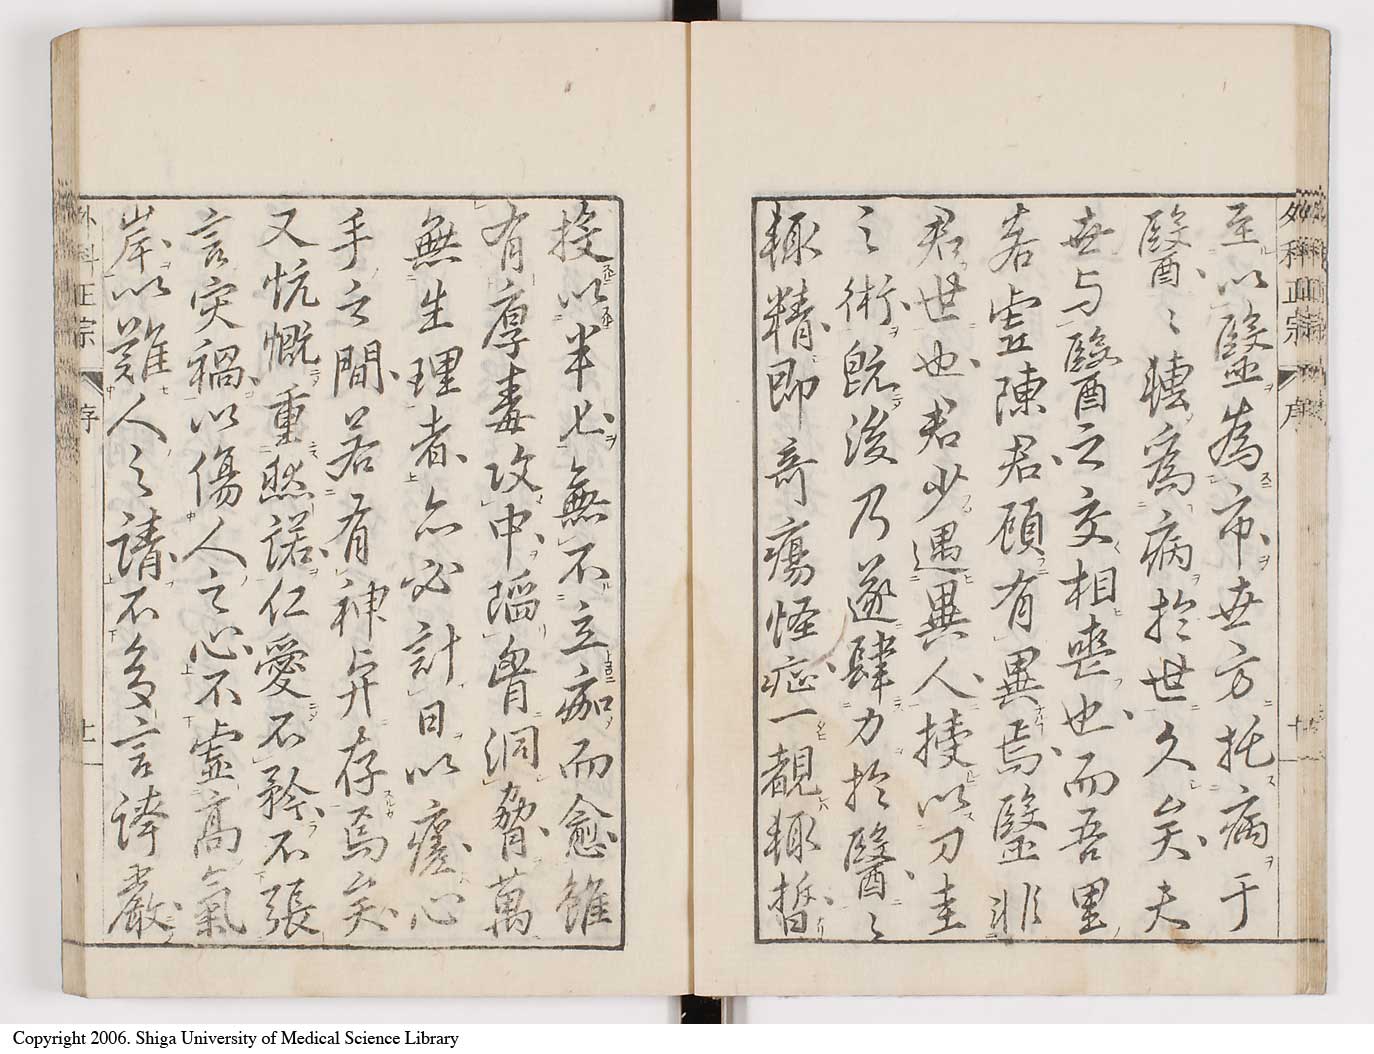 外科正宗 序
至以毉為市世方托病于
醫〻轉為病於世久矣夫
世与醫之交相喪也而吾里
若虚陳君顧有異焉毉非
君世也君少遇異人授以刀圭
之術既後乃遂肆力於醫〻
輒精即奇瘍怪症一覩輒晢
授以半匕無不立痂而愈雖
有厚毒攻中蹈胷洞脅萬
無生理者亦必計日以瘥心
手之間若有神弁存焉矣
又忼慨重然諾仁愛不矜不張
言灾禍以傷人之心不虚高氣
岸以難人之請不多言譁嚴
外科正宗 序
Copyright 2006. Shiga University of Medical Science Library